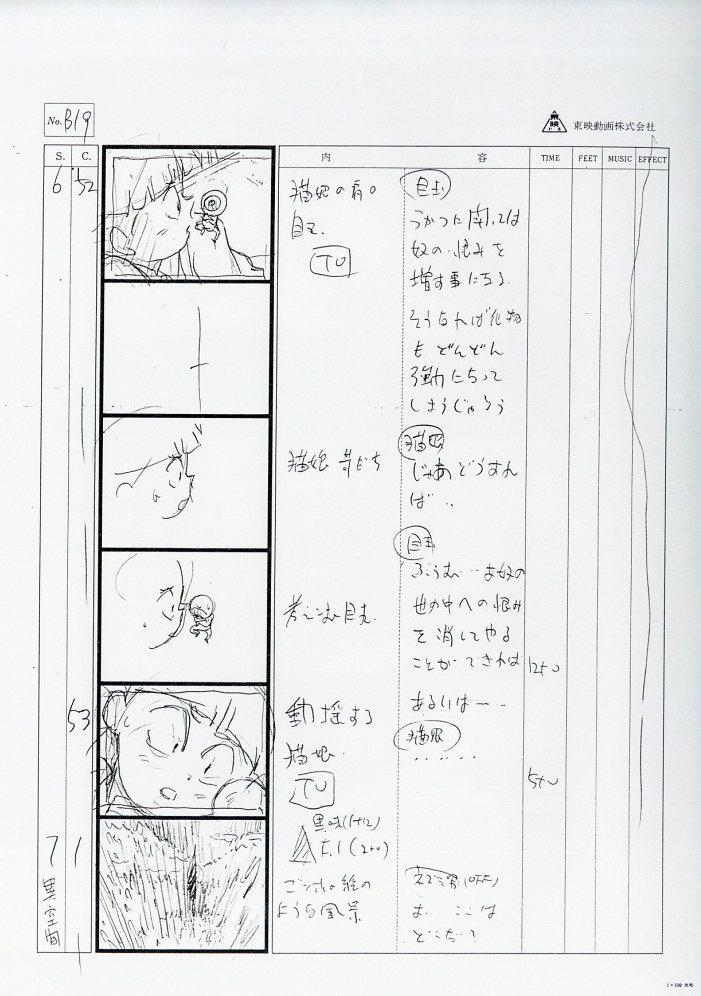 No. B19
東映動画株式会社
S. C. 内 容 TIME FEET MUSIC EFFECT
6 52
猫娘の肩の
目玉
TU
目玉
うかつに闘っては
奴の恨みを
増す事になる
そうなれば化物
もどんどん
強力になって
しまうじゃろう
猫娘
猫娘
じゃあどうすれ
ば‥
目玉
ふうむ…奴の
世の中への恨み
を消してやる
ことができれば
12+0
あるいは‥
考えこむ目玉
53
動揺する
猫娘
TU
猫娘
‥‥‥
5+0
7 1
異空間
F.I (2+0)
ゴッホの絵の
ような風景
(OFF)
ここは
どこだ?